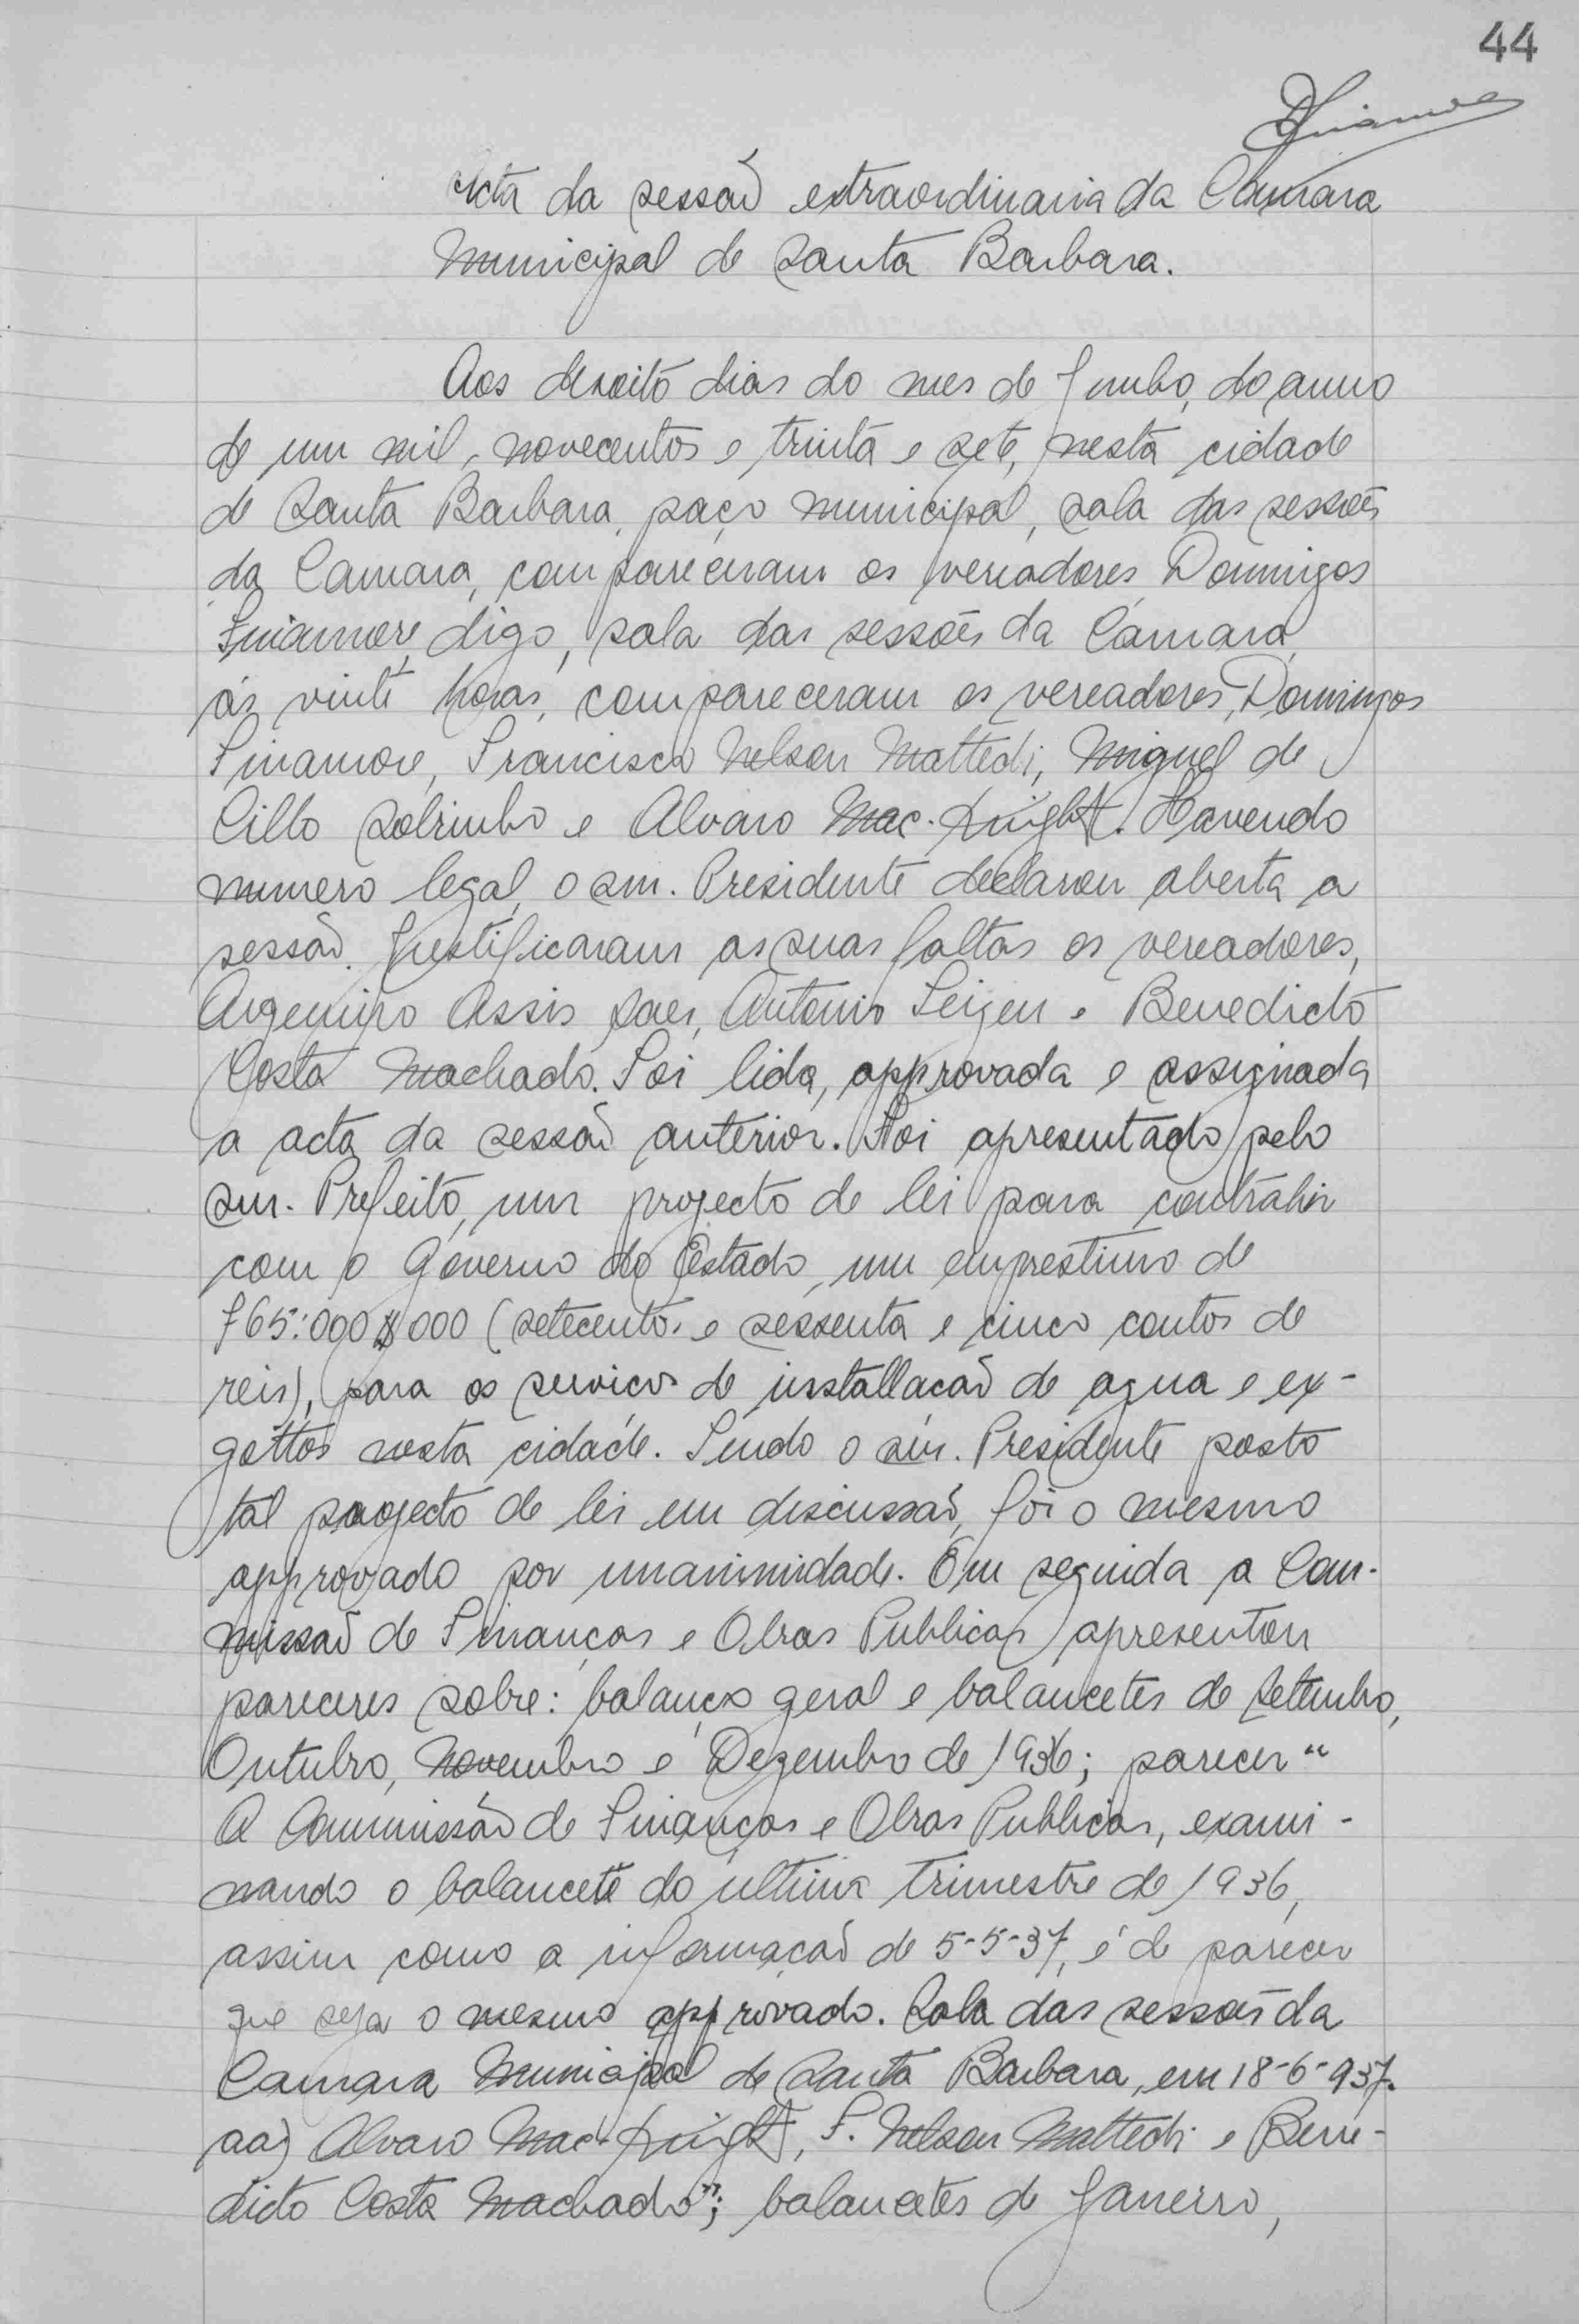 44
Acta da sessão extraordinaria da Camara
Municipal de Santa Barbara.
Aos dezoito dias do mes de Junho, do anno
de um mil, novecentos e trinta e sete, nesta cidade
de Santa Barbara, paço municipal, sala das sessões
da Camara, compareceram os vereadores Domingos
Finamore, digo, sala das sessões da Camara,
ás vinte horas, compareceram os vereadores, Domingos
Finamore, Francisco Nelson Mattedi, Miguel de
Cillo Sobrinho e Alvaro Mac-Knight. Havendo
numero legal, o snr. Presidente declarou aberta a
sessão. Justificaram as suas faltas os vereadores,
Argemiro Assis Paes, Antonio Seigen e Benedicto
Costa Machado. Foi lida, approvada e assignada
a acta da sessão anterior. Foi apresentado pelo
snr. Prefeito, um projecto de lei para contrahir
com o Governo do Estado, um emprestimo de
765:000$000 (setecentos e sessenta e cinco contos de
reis), para os serviços de installação de agua e ex-
gottos nesta cidade. Sendo o snr. Presidente posto
tal projecto de lei em discussão, foi o mesmo
approvado por unanimidade. Em seguida a Com-
missão de Finanças e Obras Publicas apresentou
pareceres sobre: balanço geral e balancetes de Setembro,
Outubro, Novembro e Dezembro de 1936; parecer "
A Commissão de Finanças e Obras Publicas, exami-
nando o balancete do ultimo trimestre de 1936,
assim como a informação de 5-5-37, é de parecer
que seja o mesmo approvado. Sala das sessões da
Camara Municipal de Santa Barbara, em 18-6-937.
aa) Alvaro Mac-Knight, F. Nelson Mattedi e Bene-
dicto Costa Machado"; balancetes de Janeiro,